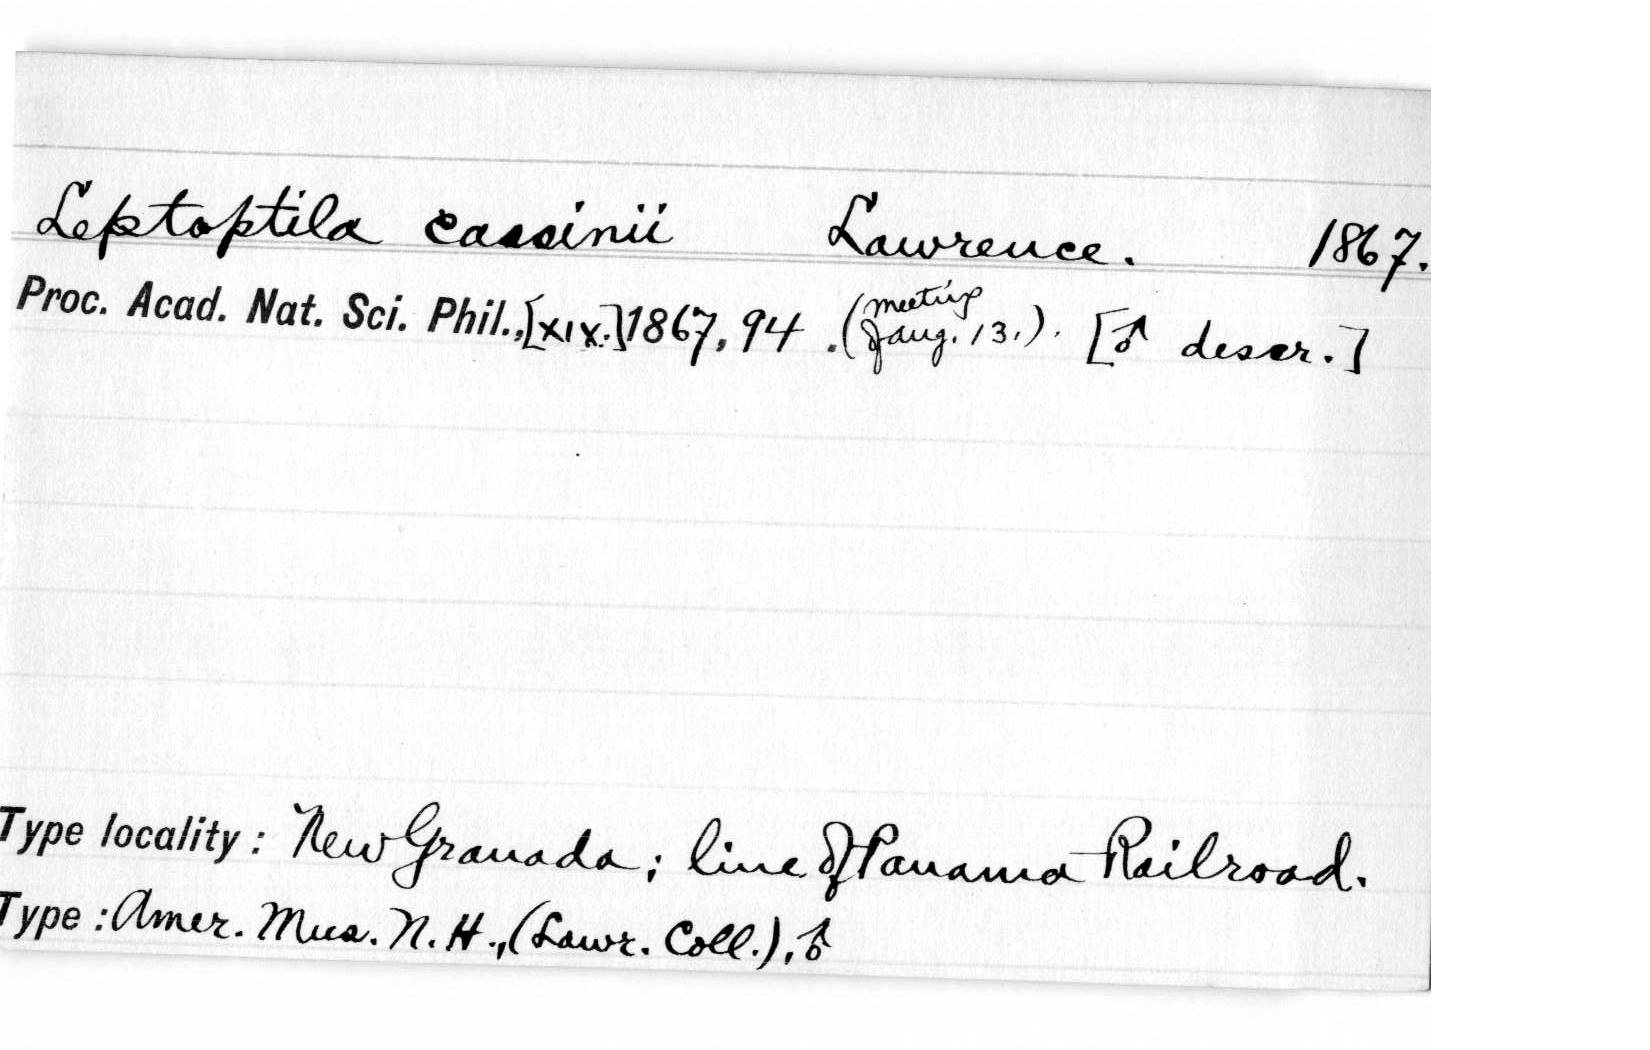 Leptoptila cassinii Lawrence. 1867.
Proc. Acad. Nat. Sci. Phil., [XIX.] 1867, 94. (meeting of Aug. 13.). [♂ descr.]
Type locality: New Granada; line of Panama Railroad.
Type: Amer. Mus. N. H., (Lawr. Coll.), ♂